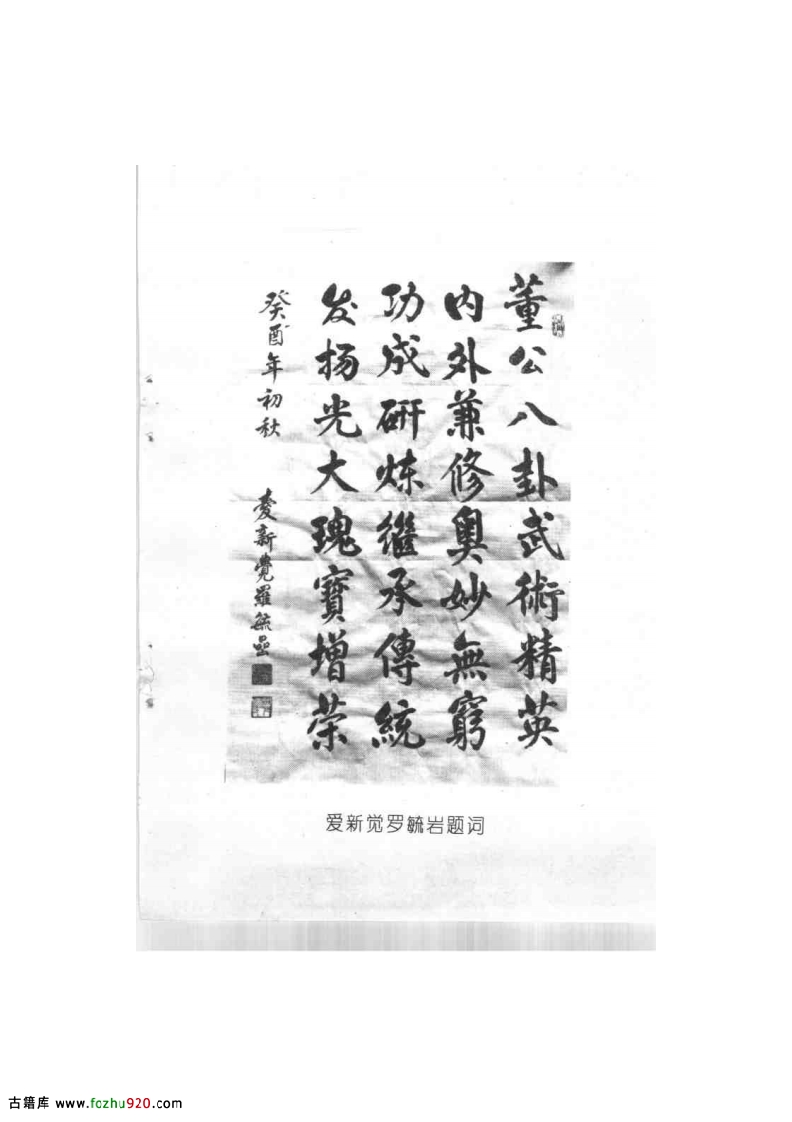 董公八卦武術精英
内外兼修奥妙無窮
功成研炼繼承傳統
发扬光大瑰寶增荣
癸酉年初秋
愛新覺羅毓嵒
爱新觉罗毓岩题词
古籍库 www.fozhu920.com